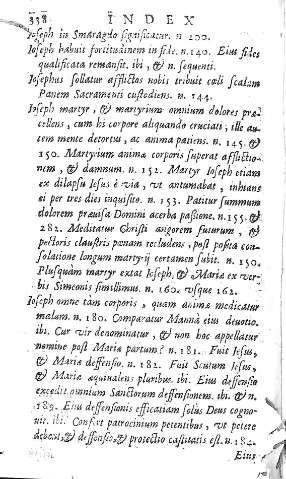 338 INDEX
Ioseph in Smaragdo significatur. n 200.
Ioseph habuit fortitudinem in fide. n. 140. Eius fides
qualificata remansit. ibi, & n. sequenti.
Iosephus sollatur afflictos nobis tribuit cœli scalam
Panem Sacramenti custodiens. n. 144.
Ioseph martyr, & martyrium omnium dolores præ-
cellens, cum hi corpore aliquando cruciati, ille au-
tem mente detortus, ac anima patiens. n. 145. &
150. Martyrium animæ corporis superat afflictio-
nem, & damnum. n. 152. Martyr Ioseph etiam
ex dilapsu Iesus è via, vt autumabat, inhiane
ei per tres dies inquisito. n. 153. Patitur summum
dolorem præuisa Domini acerba passione. n. 155. &
282. Meditatur Christi angorem futurum, &
pectoris claustris panam recludens, post posita con-
solatione longum martyrij certamen subit. n. 150.
Plusquàm martyr extat Ioseph, & Mariæ ex ver-
bis Simeonis simillimus. n. 160. vsque 162.
Ioseph omne tàm corporis, quam animæ medicatur
malum. n. 180. Comparatur Mannà eius deuotio.
ibi. Cur vir denominatur, & non hoc appellatur
nomine post Mariæ partum? n. 181. Fuit Iesus,
& Mariæ deffensio. n. 182. Fuit Scutum Iesus,
& Mariæ æquiualens pluribus. ibi. Eius deffensio
excedit omnium Sanctorum deffensionem. ibi. & n.
189. Eius deffensionis efficatiam solùs Deus cogno-
uit. ibi. Confert patrocinium petentibus, vt petere
debent, & deffensio, & protectio castitatis est. n. 184.
Eius